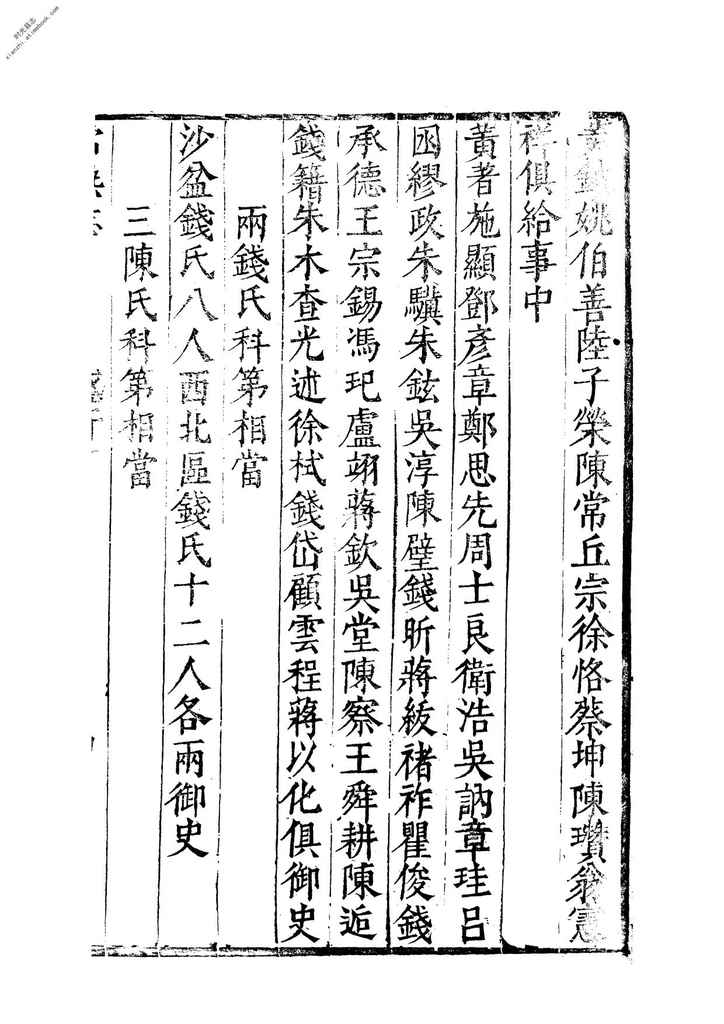 黃鉞姚伯善陸子榮陳常丘宗徐恪蔡坤陳瓚翁憲
祥俱給事中
黃著施顯鄧彥章鄭思先周士良衛浩吳訥章珪呂
囦繆政朱驥朱鉉吳淳陳璧錢昕蔣紱褚祚瞿俊錢
承德王宗錫馮玘盧翊蔣欽吳堂陳察王舜耕陳逅
錢籍朱木查光述徐栻錢岱顧雲程蔣以化俱御史
兩錢氏科第相當
沙盆錢氏八人西北區錢氏十二人各兩御史
三陳氏科第相當